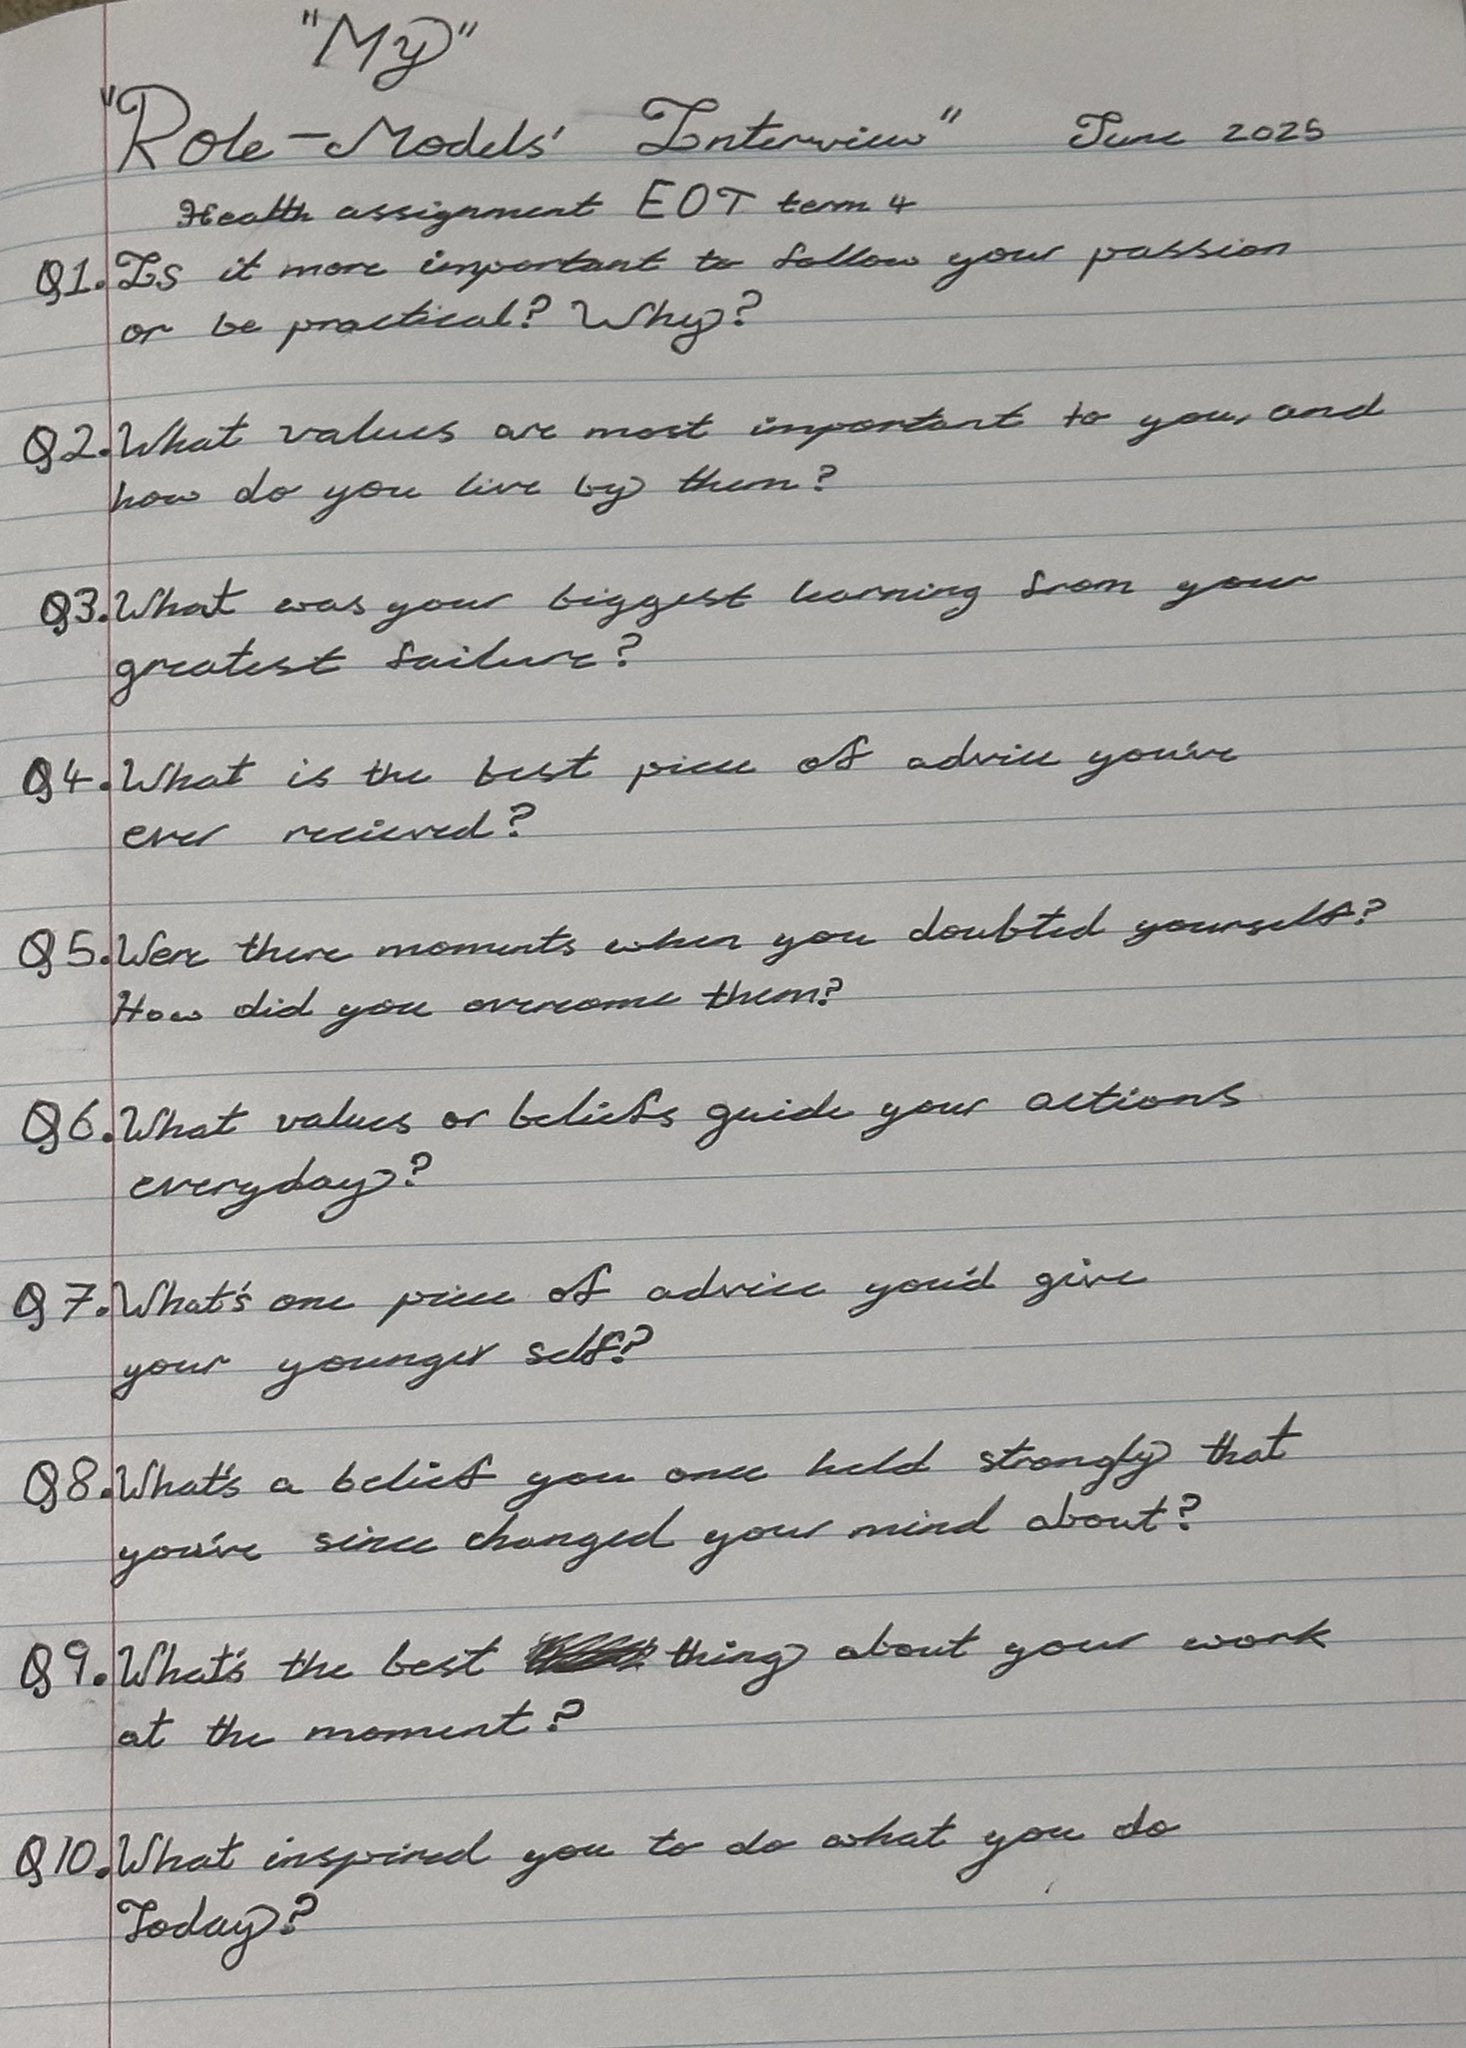 "My"
"Role-Models' Interview" June 2025
Health assignment EOT term 4
Q1. Is it more important to follow your passion
or be practical? Why?
Q2. What values are most important to you, and
how do you live by them?
Q3. What was your biggest learning from your
greatest failure?
Q4. What is the best piece of advice you've
ever recieved?
Q5. Were there moments when you doubted yourself?
How did you overcome them?
Q6. What values or beliefs guide your actions
everyday?
Q7. What's one piece of advice you'd give
your younger self?
Q8. What's a belief you once held strongly that
you've since changed your mind about?
Q9. What's the best thing about your work
at the moment?
Q10. What inspired you to do what you do
Today?